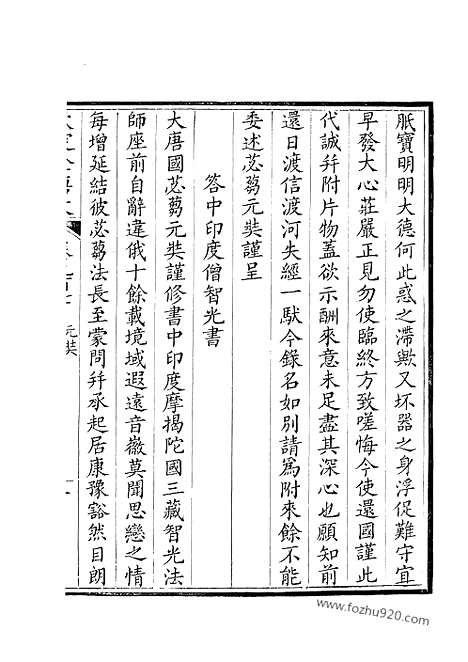 眂寶明明大德何此惑之滯歟又坏器之身浮促難守宜
早發大心莊嚴正見勿使臨終方致嗟悔今使還國謹此
代誠幷附片物蓋欲示酬來意未足盡其深心也願知前
還日渡信渡河失經一馱今錄名如別請爲附來餘不能
委述苾蒭元奘謹呈
答中印度僧智光書
大唐國苾蒭元奘謹修書中印度摩揭陀國三藏智光法
師座前自辭違俄十餘載境域遐遠音徽莫聞思戀之情
每增延結彼苾蒭法長至蒙問幷承起居康豫豁然目朗
元奘
www.fozhu920.com